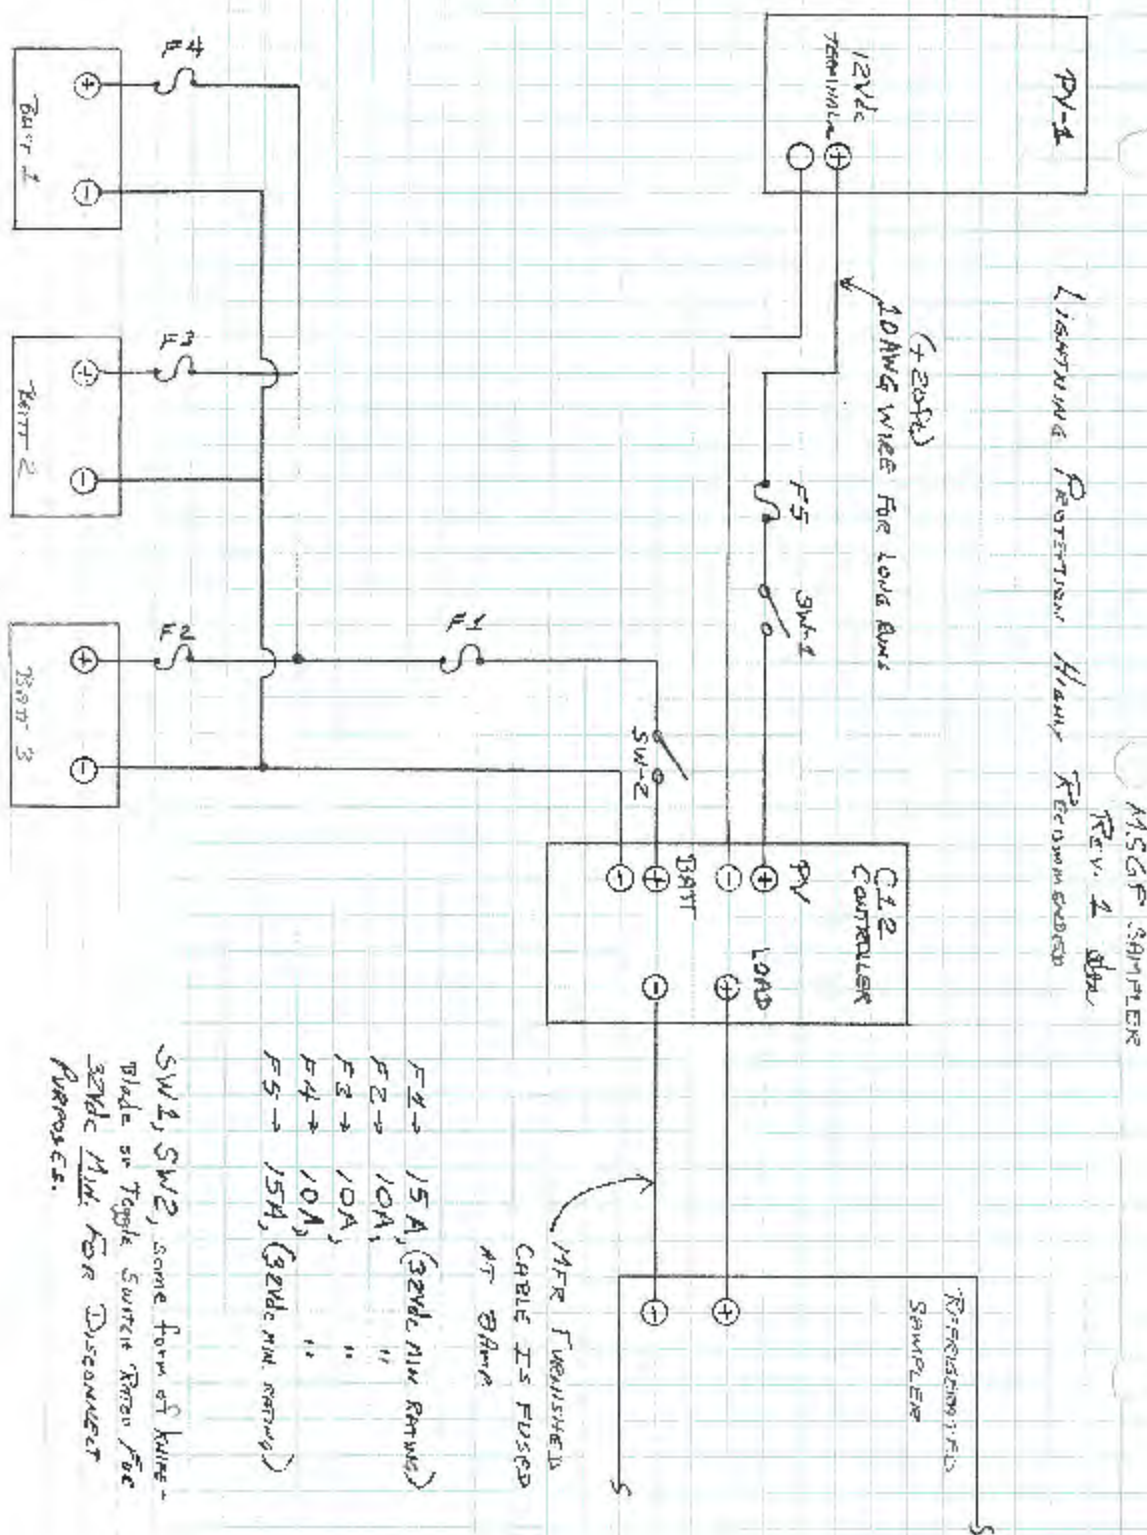 MSGF SAMPLER
REV. 1
LIGHTNING PROTECTION HIGHLY RECOMMENDED
PV-1
12Vdc
TERMINALS
+
(+20ft)
10AWG WIRE FOR LONG RUNS
F5
SW-1
C12
CONTROLLER
PV
+
-
LOAD
+
-
BATT
+
-
REFRIGERATED
SAMPLER
+
-
S
S
MFR FURNISHED
CABLE IS FUSED
AT 8Amp
SW-2
F1
F4
F3
F2
+
-
BATT 1
+
-
BATT-2
+
-
BATT 3
F1→ 15A, (32Vdc MIN RATING)
F2→ 10A, "
F3→ 10A, "
F4→ 10A, "
F5→ 15A, (32Vdc MIN. RATING)
SW1, SW2, some form of KNIFE-
Blade or Toggle SWITCH RATED FOR
32Vdc MIN. FOR DISCONNECT
PURPOSES.